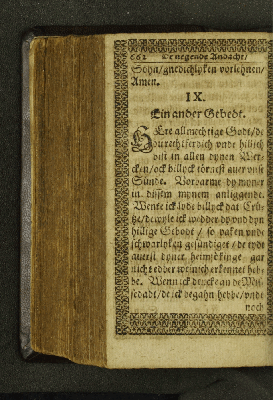 662 Truegende Andacht/
Söhn/ gnedichlyken vorlehnen/
Amen.
IX.
Ein ander Gebedt.
HEre allmechtige Godt/ de
du rechtferdich unde hillich
bist in allen dynen Wer-
cken/ ock billyck törnest aver unse
Sünde. Vorbarme dy myner
in dissem mynem anliggende.
Wente ick lyde billyck dat Crü-
tze/ dewyle ick wedder dy und dyn
hillige Gebodt / so vaken unde
schwarlyken gesündiget / de tydt
dyner heimsökinge gar
nicht edder weinich erkennet heb-
be. Wenn ick dencke an de Mis-
sedadt/ de ick begahn hebbe/ unde
noch